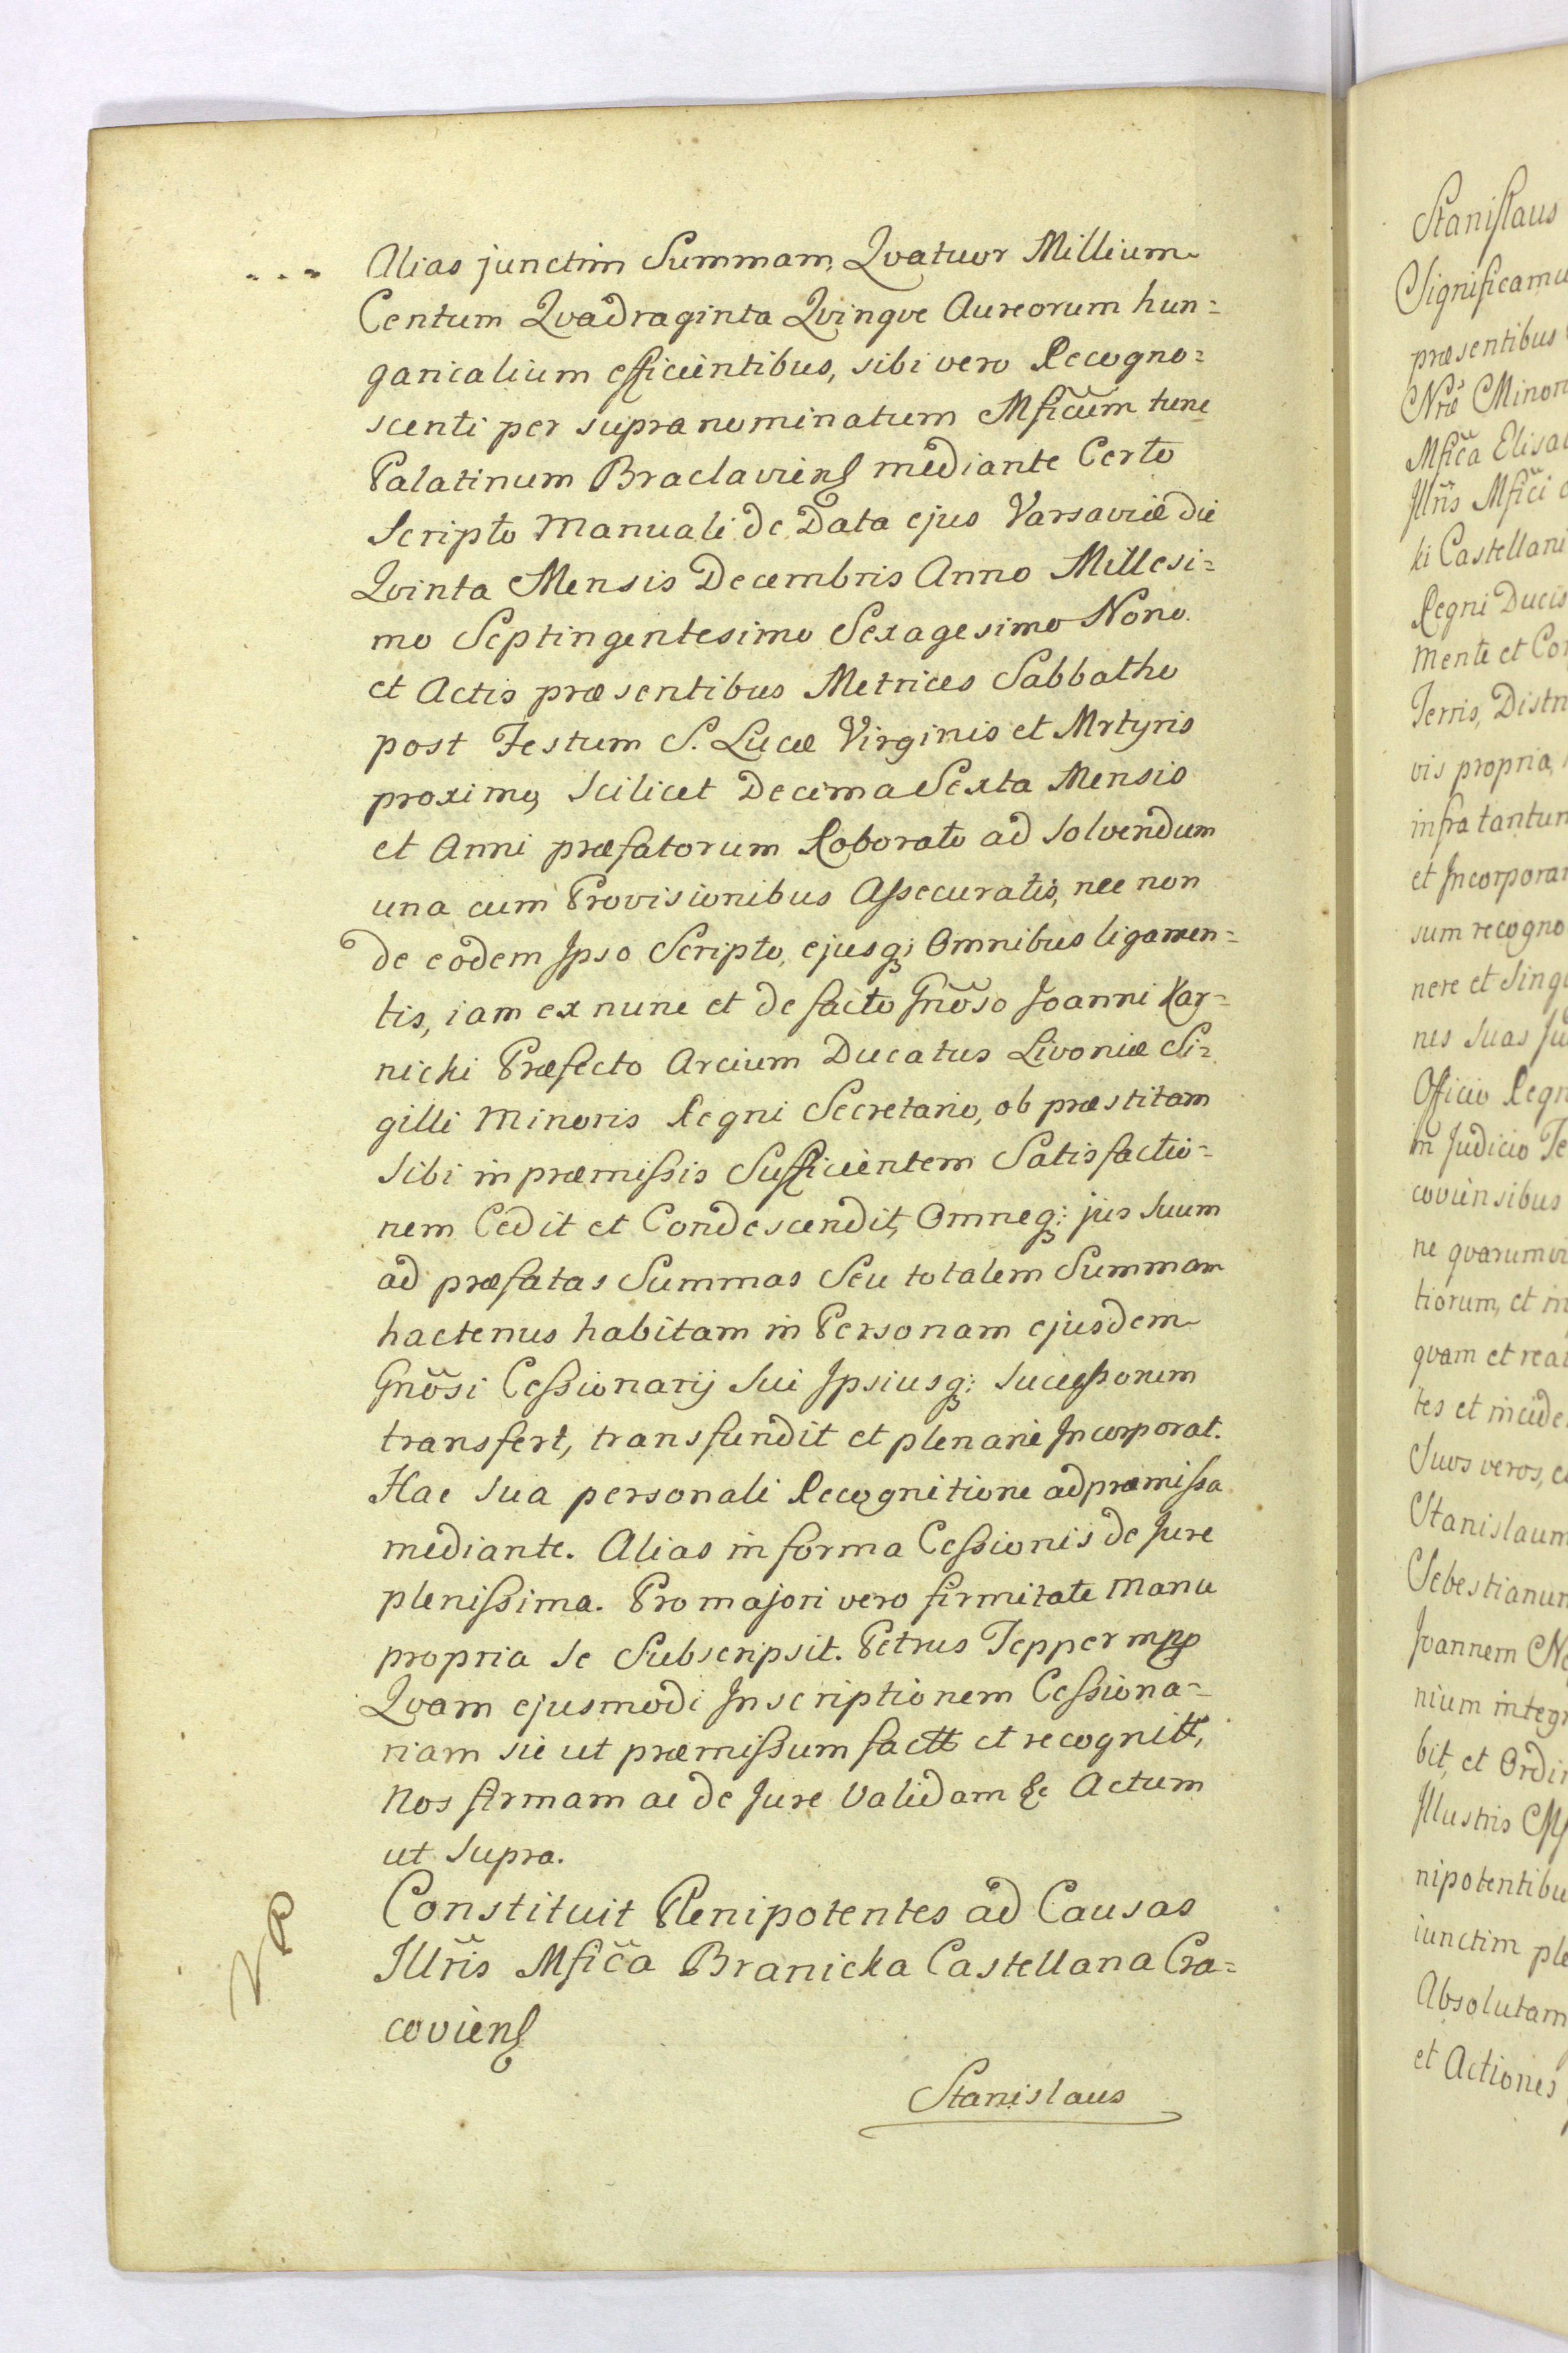 Alias junctim Summam, Qvatuor Millium
Centum Qvadraginta Qvinqve Aureorum hun=
garicalium efficientibus, sibi vero Recogno=
scenti per supra nominatum Mficum tunc
Palatinum Braclaviens mediante Certo
Scripto Manuali de Data ejus Varsaviæ die
Qvinta Mensis Decembris Anno Millesi=
mo Septingentesimo Sexagesimo Nono
et Actis præsentibus Metrices Sabbatho
post Festum S. Luciæ Virginis et Mrtyris
proximo, scilicet Decima Sexta Mensis
et Anni præfatorum Roborato ad solvendum
una cum Provisionibus Assecuratis, nec non
de eodem Ipso Scripto, ejusq; Omnibus ligamen=
tis, iam ex nunc et de facto Gnõso Joanni Kar=
nicki Præfecto Arcium Ducatus Livoniæ Si=
gilli Minoris Regni Secretario, ob præstitam
sibi in præmissis Sufficientem Satisfactio=
nem Cedit et Condescendit, Omneq; jus suum
ad præfatas Summas Seu totalem Summam
hactenus habitam in Personam ejusdem
Gnõsi Cessionarij sui Ipsiusq; sucessorum
transfert, transfundit et plenarie Incorporat.
Hac sua personali Recognitione ad præmissa
mediante. Alias in forma Cessionis de Jure
plenissima. Pro majori vero firmitate manu
propria se Subscripsit. Petrus Tepper mpp
Qvam ejusmodi Inscriptionem Cessiona=
riam sic ut præmissum factt et recognitt,
Nos firmam ac de Jure Validam &c Actum
ut supra.
Constituit Plenipotentes ad Causas
Illris Mfica Branicka Castellana Cra=
coviens
Stanislaus
Stanislaus
Significamu
præsentibus
Nræ Minor
Mfica Elisa
Illris Mfici
ki Castellani
Regni Ducis
Mente et Co
Terris, Distri
vis propria,
infra tantum
et Incorporar
sum recogno
nere et Singu
nes suas
Officio Regn
in Judicio Te
coviensibus
ne qvarumvi
tiorum, et
qvam et rea
tes et incide
Suos veros,
Stanislaum
Sebestianum
Joannem
nium integr
bit, et Ordin
Illustris
nipotentibu
iunctim ple
Absolutam
et Actiones